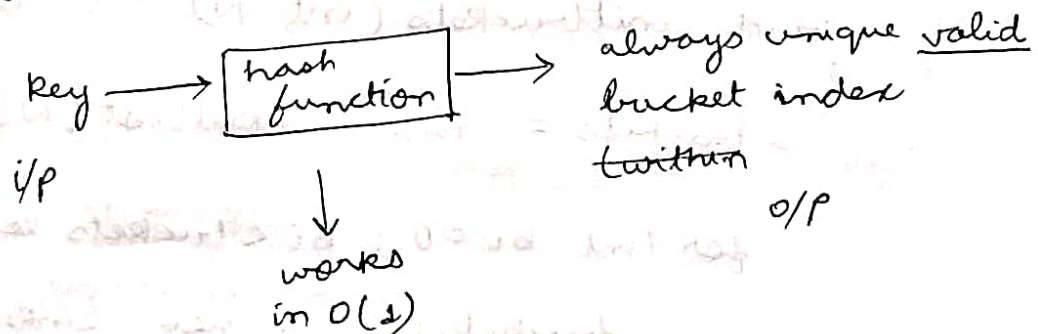 key → hash function → always unique valid
bucket index
(within
i/p
o/p
↓
works
in O(1)